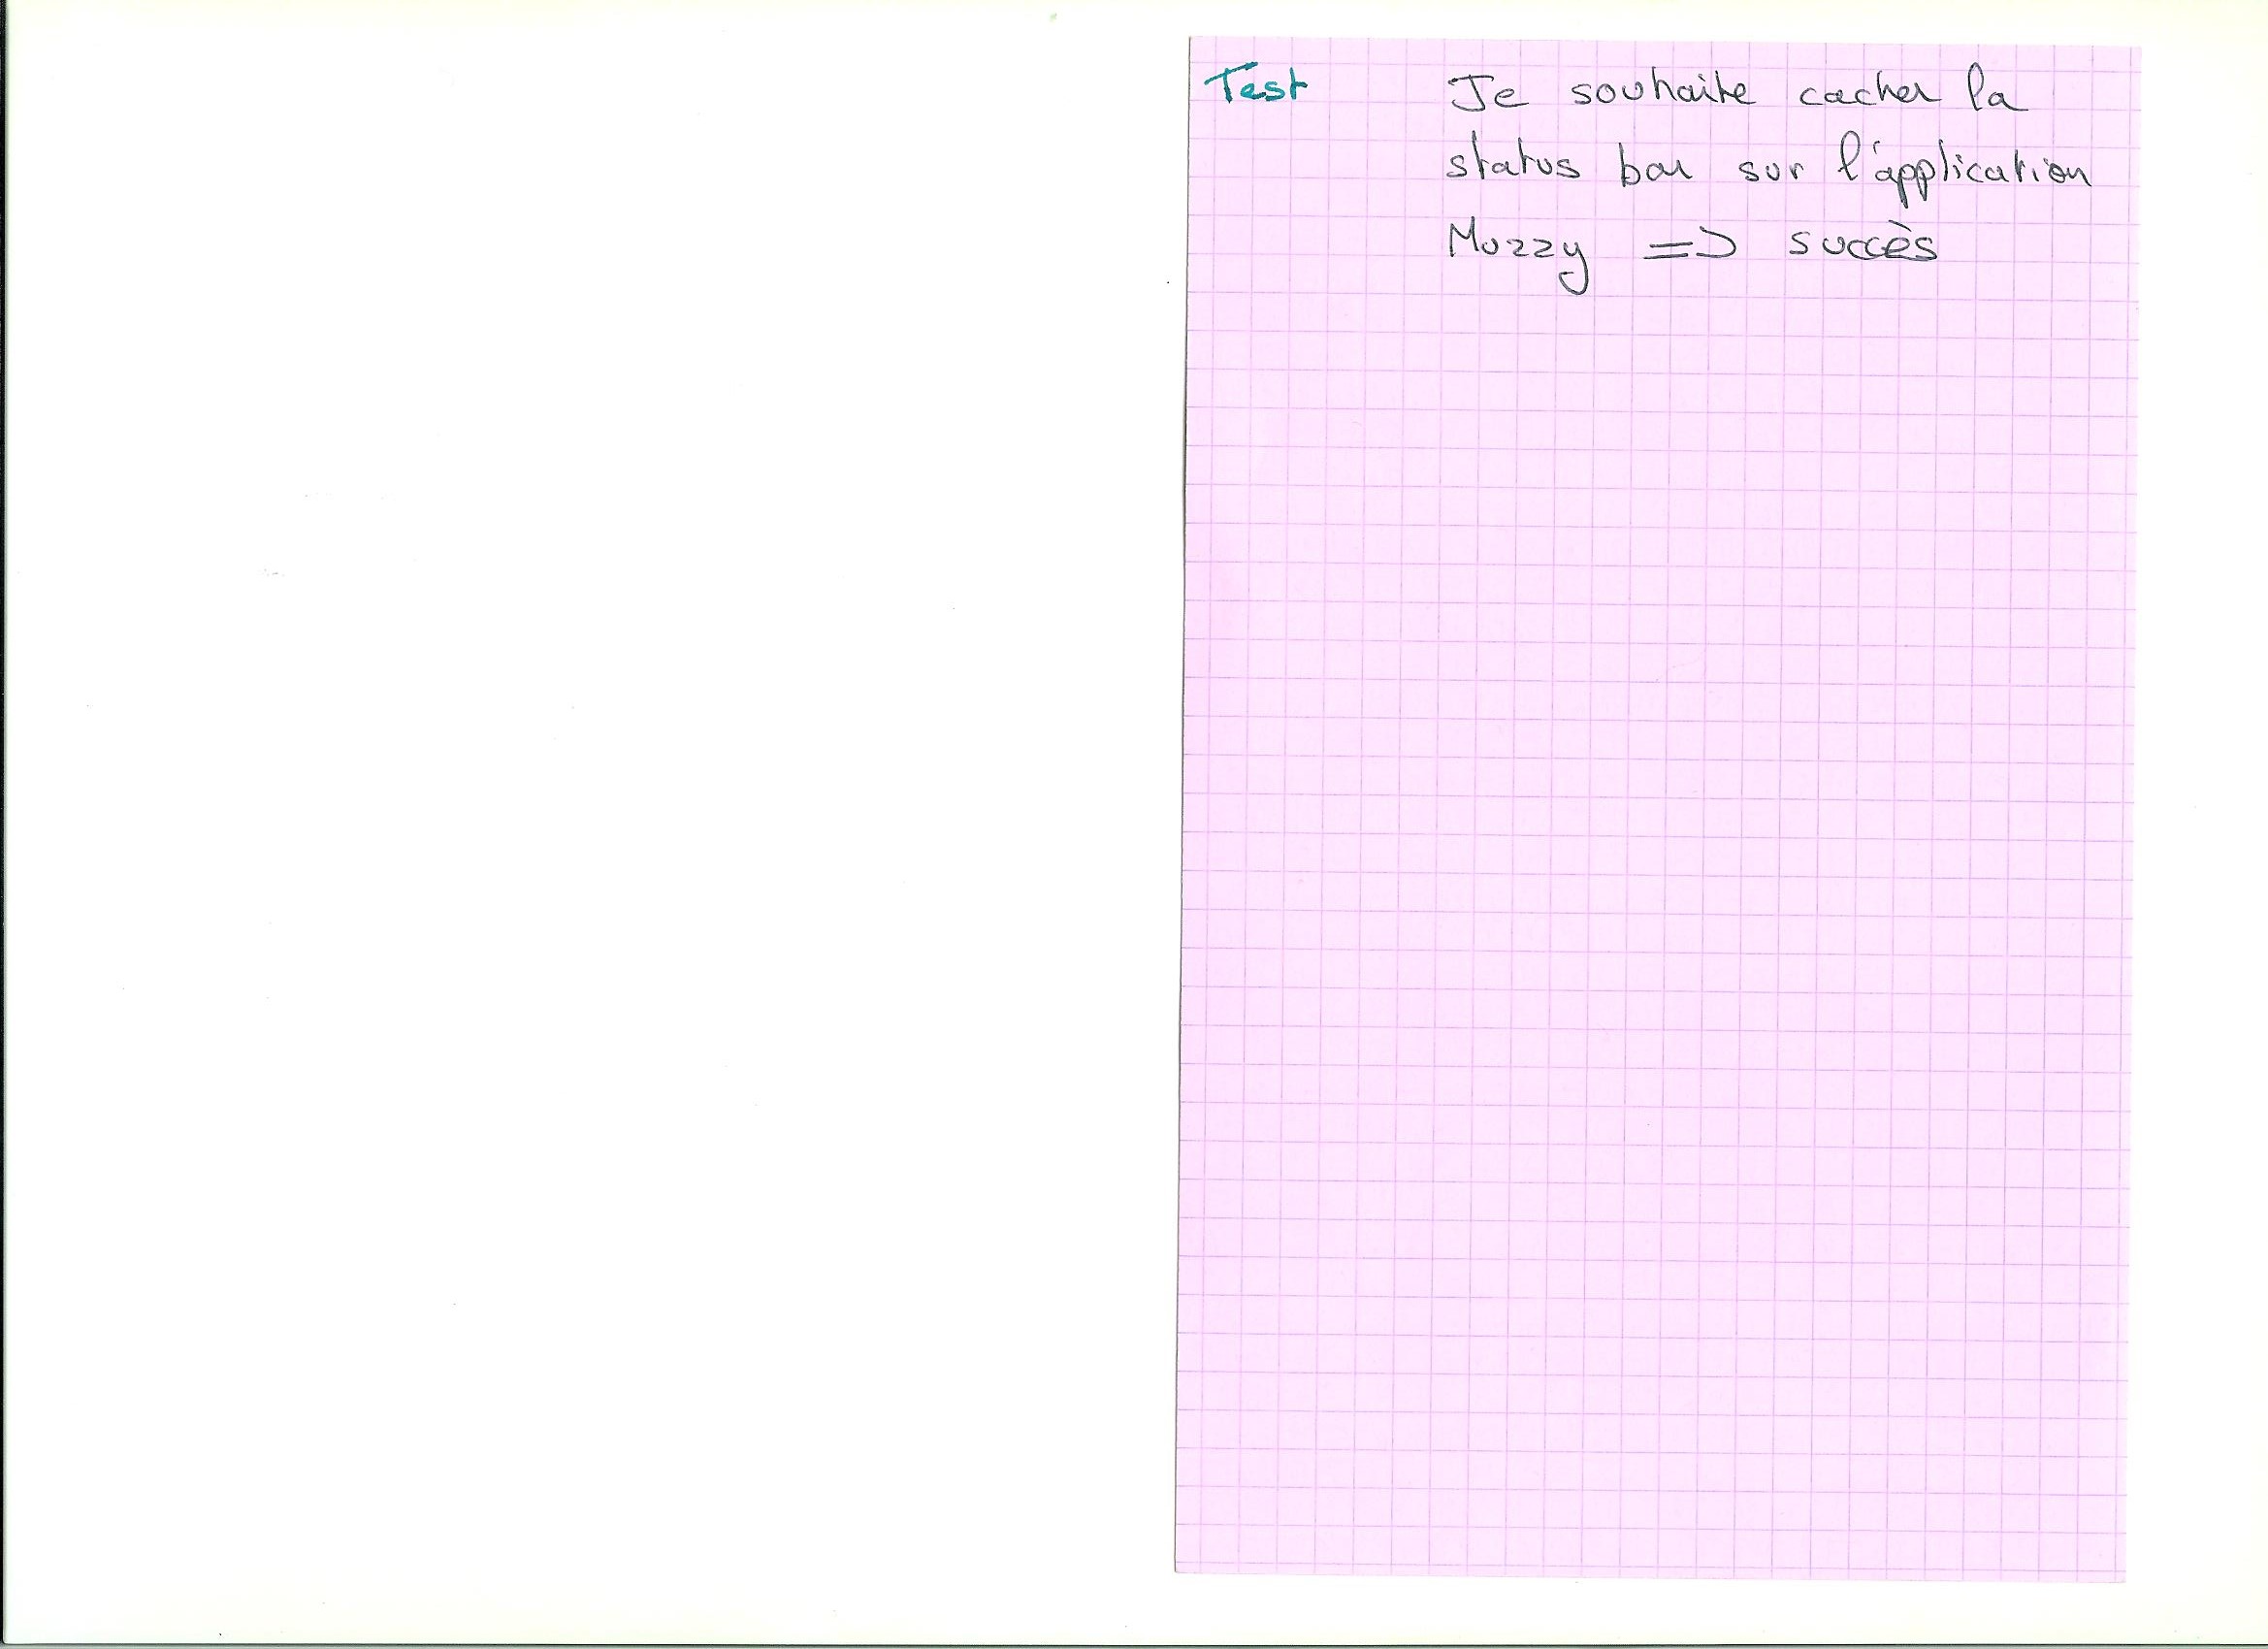 Test Je souhaite cacher la
status bar sur l'application
Muzzy => succès